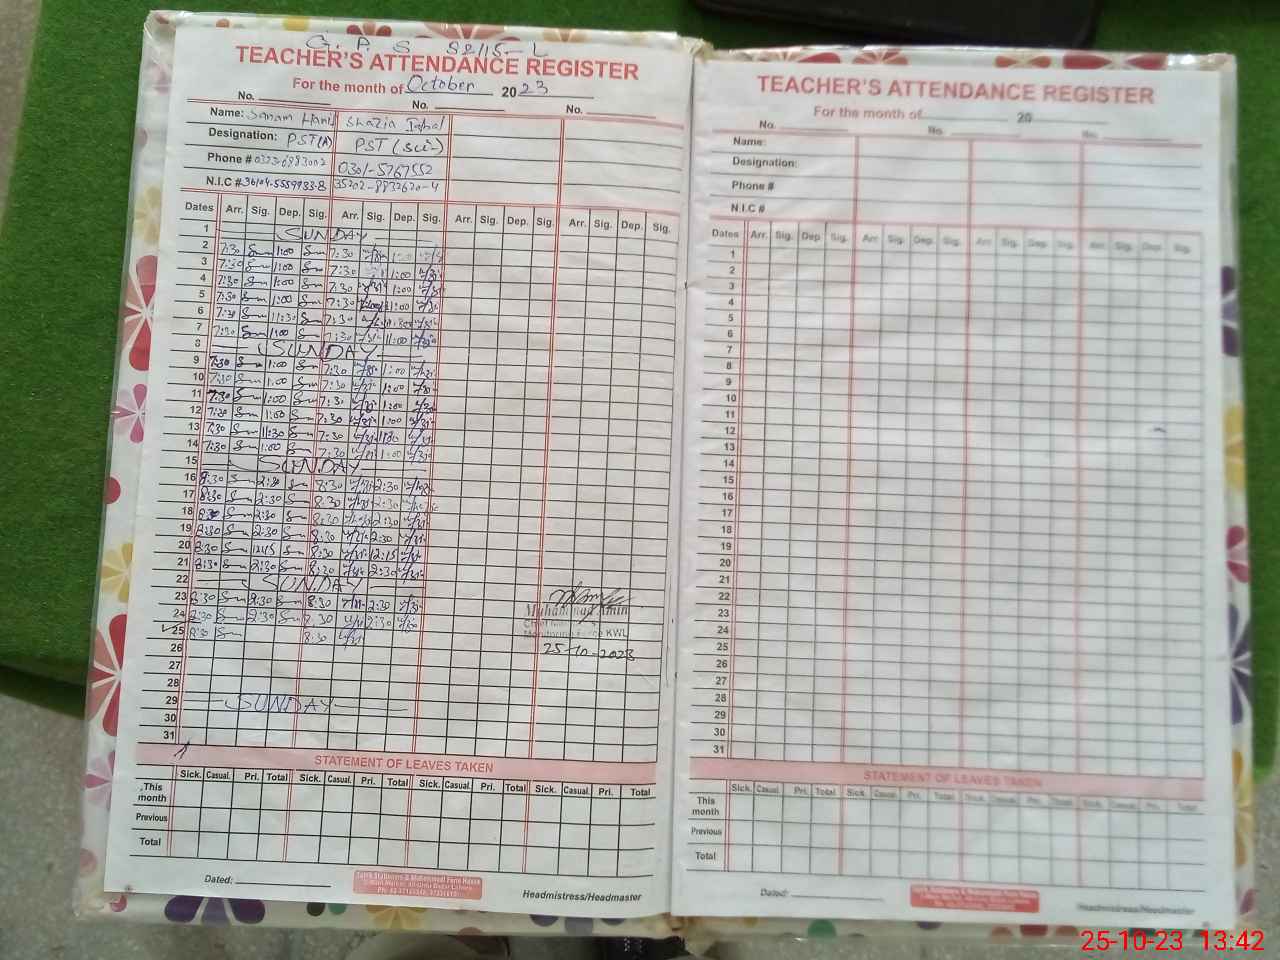 G. P. S 82/15-L
TEACHER'S ATTENDANCE REGISTER
For the month of October 2023
No. No. No.
Name: Sanam Hanif Shazia Iqbal
Designation: PST(A) PST (Sci)
Phone # 0301-5767552
N.I.C # 36104-5559933-8 35202-8832620-4
Dates Arr. Sig. Dep. Sig. Arr. Sig. Dep. Sig. Arr. Sig. Dep. Sig. Arr. Sig. Dep. Sig.
1 SUNDAY
2 7:30 1:00 7:30
3 7:30 1:00 7:30 1:00
4 7:30 1:00 7:30 1:00
5 7:30 1:00 7:30 1:00
6 7:30 11:30 7:30
7 7:30 1:00 7:30 1:00
8 SUNDAY
9 7:30 1:00 7:30 1:00
10 7:30 1:00 7:30 1:00
11 7:30 1:00 7:30 1:00
12 7:30 1:00 7:30 1:00
13 7:30 11:30 7:30
14 7:30 1:00 7:30 1:00
15 SUNDAY
16 8:30 2:30 8:30 2:30
17 8:30 2:30 8:30 2:30
18 2:30 8:30 2:30
19 8:30 2:30 8:30 2:30
20 8:30 8:30 12:15
21 8:30 2:30 8:30 2:30
22 SUNDAY
23 8:30 2:30 8:30 2:30
24 2:30 8:30 2:30
25 8:30 8:30
26
27
28
29 SUNDAY
30
31
Muhammad Amin
KWL
25-10-2023
STATEMENT OF LEAVES TAKEN
Sick. Casual. Pri. Total Sick. Casual. Pri. Total Sick. Casual. Pri. Total Sick. Casual. Pri. Total
This month
Previous
Total
Dated:
Headmistress/Headmaster
TEACHER'S ATTENDANCE REGISTER
For the month of 20
No. No. No.
Name:
Designation:
Phone #
N.I.C #
Dates Arr. Sig. Dep. Sig. Arr. Sig. Dep. Sig. Arr. Sig. Dep. Sig. Arr. Sig. Dep. Sig.
1
2
3
4
5
6
7
8
9
10
11
12
13
14
15
16
17
18
19
20
21
22
23
24
25
26
27
28
29
30
31
STATEMENT OF LEAVES TAKEN
Sick. Casual. Pri. Total Sick. Casual. Pri. Total Sick. Casual. Pri. Total Sick. Casual. Pri. Total
This month
Previous
Total
Dated:
Headmistress/Headmaster
25-10-23 13:42